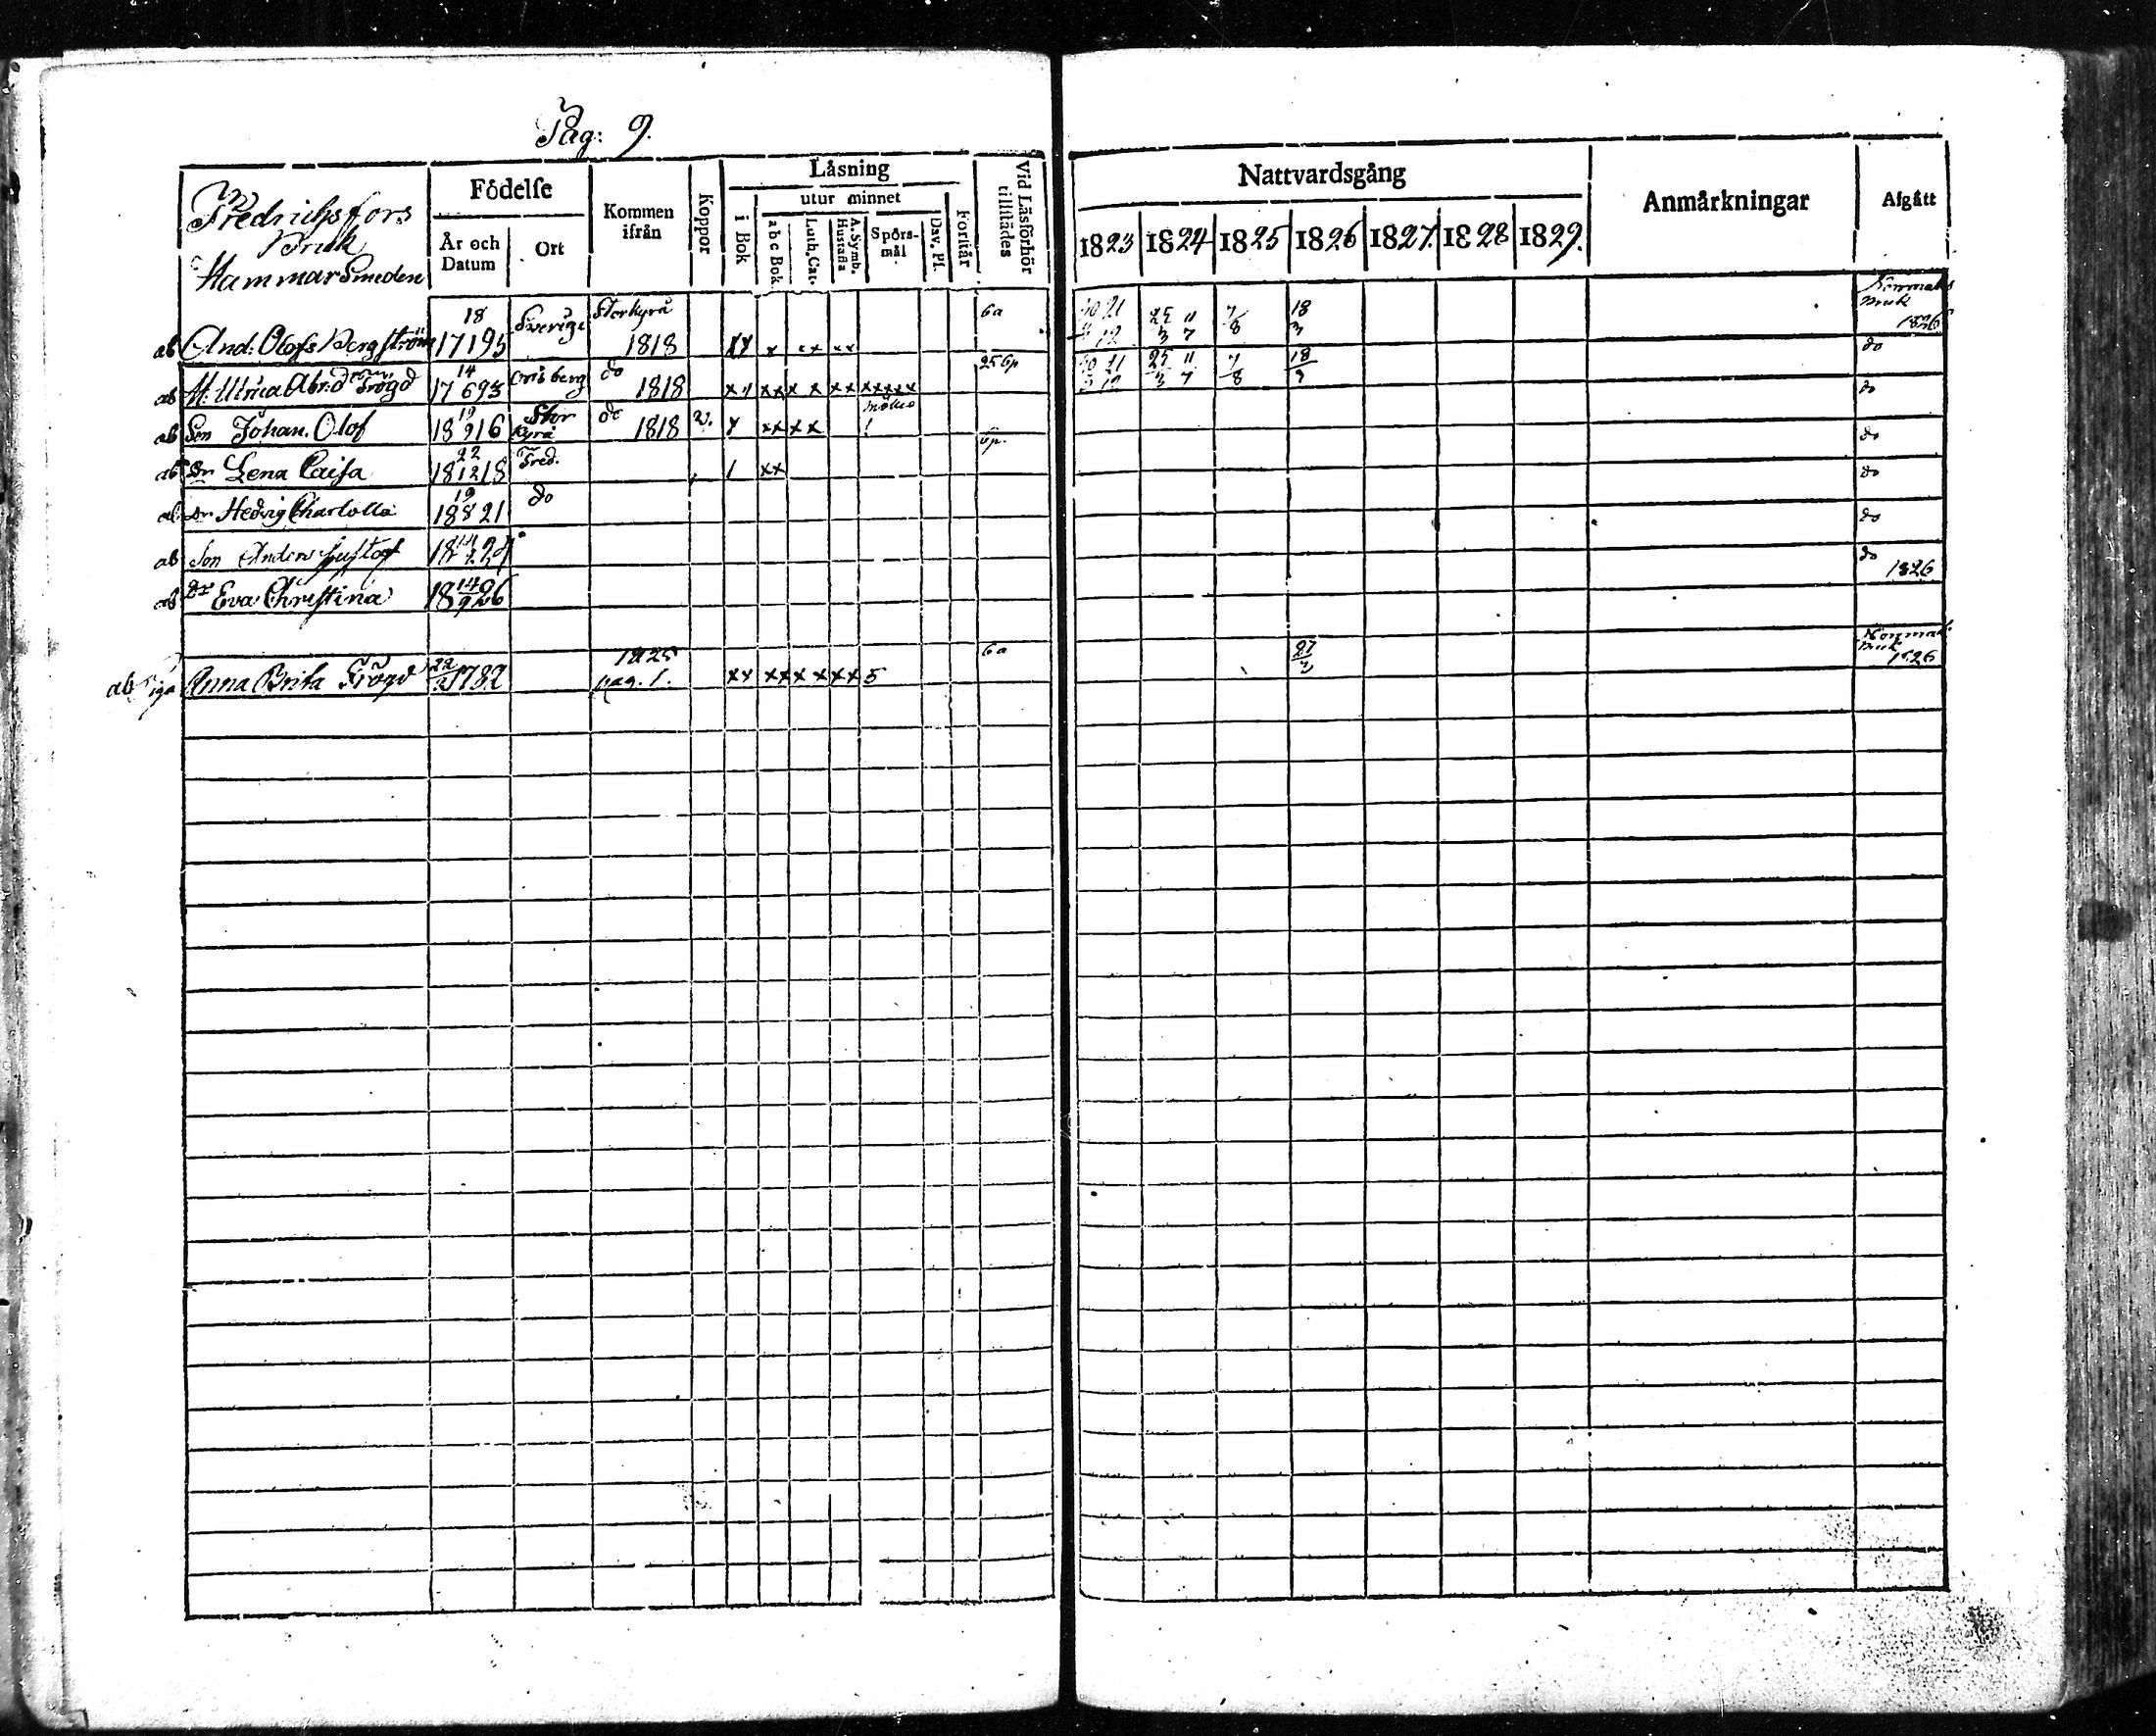 Pag: 9.
Fredrichsfors
Bruk
Hammar Smeden
Födelse
År och Datum
Ort
Kommen ifrån
Koppor
Läsning
i Bok
utur minnet
a b c Bok
Luth. Cat.
A. Symb. Hustafla
Spörs-mål
Dav. Ps.
Förstår
Vid Läsförhör tillstädes
Nattvardsgång
1823 1824 1825 1826 1827. 1828 1829.
Anmärkningar
Afgått
ab And: Olofs Bergström 18 17 1 95 Sverige Storkyrå 1818 xx x xx xx 6a 25 11 3 7 7/8 18 3 Bruk 1826
ab M. Ulrica Abr. d Frögd 14 17 6 93 do 1818 xx xx x x xx xxxxx 25 6p 25 11 3 7 7/8 18/9 do
ab Son Johan Olof 19 18 9 16 Stor Kyrå do 1818 xx xx do
ab Dr Lena Caisa 22 18 12 18 Fred. 1 xx 6p. do
ab Dr Hedvig Charlotta 19 18 8 21 do do
ab Son Anders Gustaf do
ab Dr Eva Christina 18 14/9 26 do 1826
ab Piga Anna Brita Frögd 22 1782 1825 pag. 1. xx xx x x xx 5 6a 27 Bruk 1826